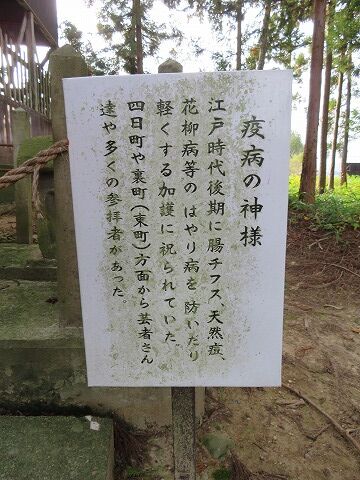 疫病の神様
江戸時代後期に腸チフス、天然痘、
花柳病等のはやり病を防いだり
軽くする加護に祝られていた。
四日町や裏町（東町）方面から芸者さん
達や多くの参拝者があった。